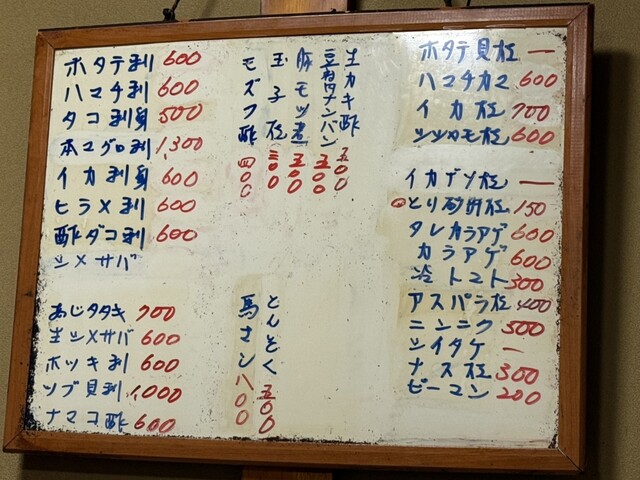 ホタテ刺 600
ハマチ刺 600
タコ刺身 500
本マグロ刺 1,300
イカ刺身 600
ヒラメ刺 600
酢ダコ刺 600
シメサバ
あじタタキ 700
生シメサバ 600
ホッキ刺 600
ツブ貝刺 1,000
ナマコ酢 600
生カキ酢 五〇〇
豆腐ナンバン 五〇〇
豚モツ煮 五〇〇
玉子焼 三〇〇
モズク酢 四〇〇
とんそく 五〇〇
馬サシ 八〇〇
ホタテ貝焼 ー
ハマチカマ 600
イカ焼 700
ツツカモ焼 600
イカゲソ焼 ー
とり砂肝焼 150
タレカラアゲ 600
カラアゲ 600
冷トマト 300
アスパラ焼 400
ニンニク 500
シイタケ ー
ナス焼 300
ピーマン 200